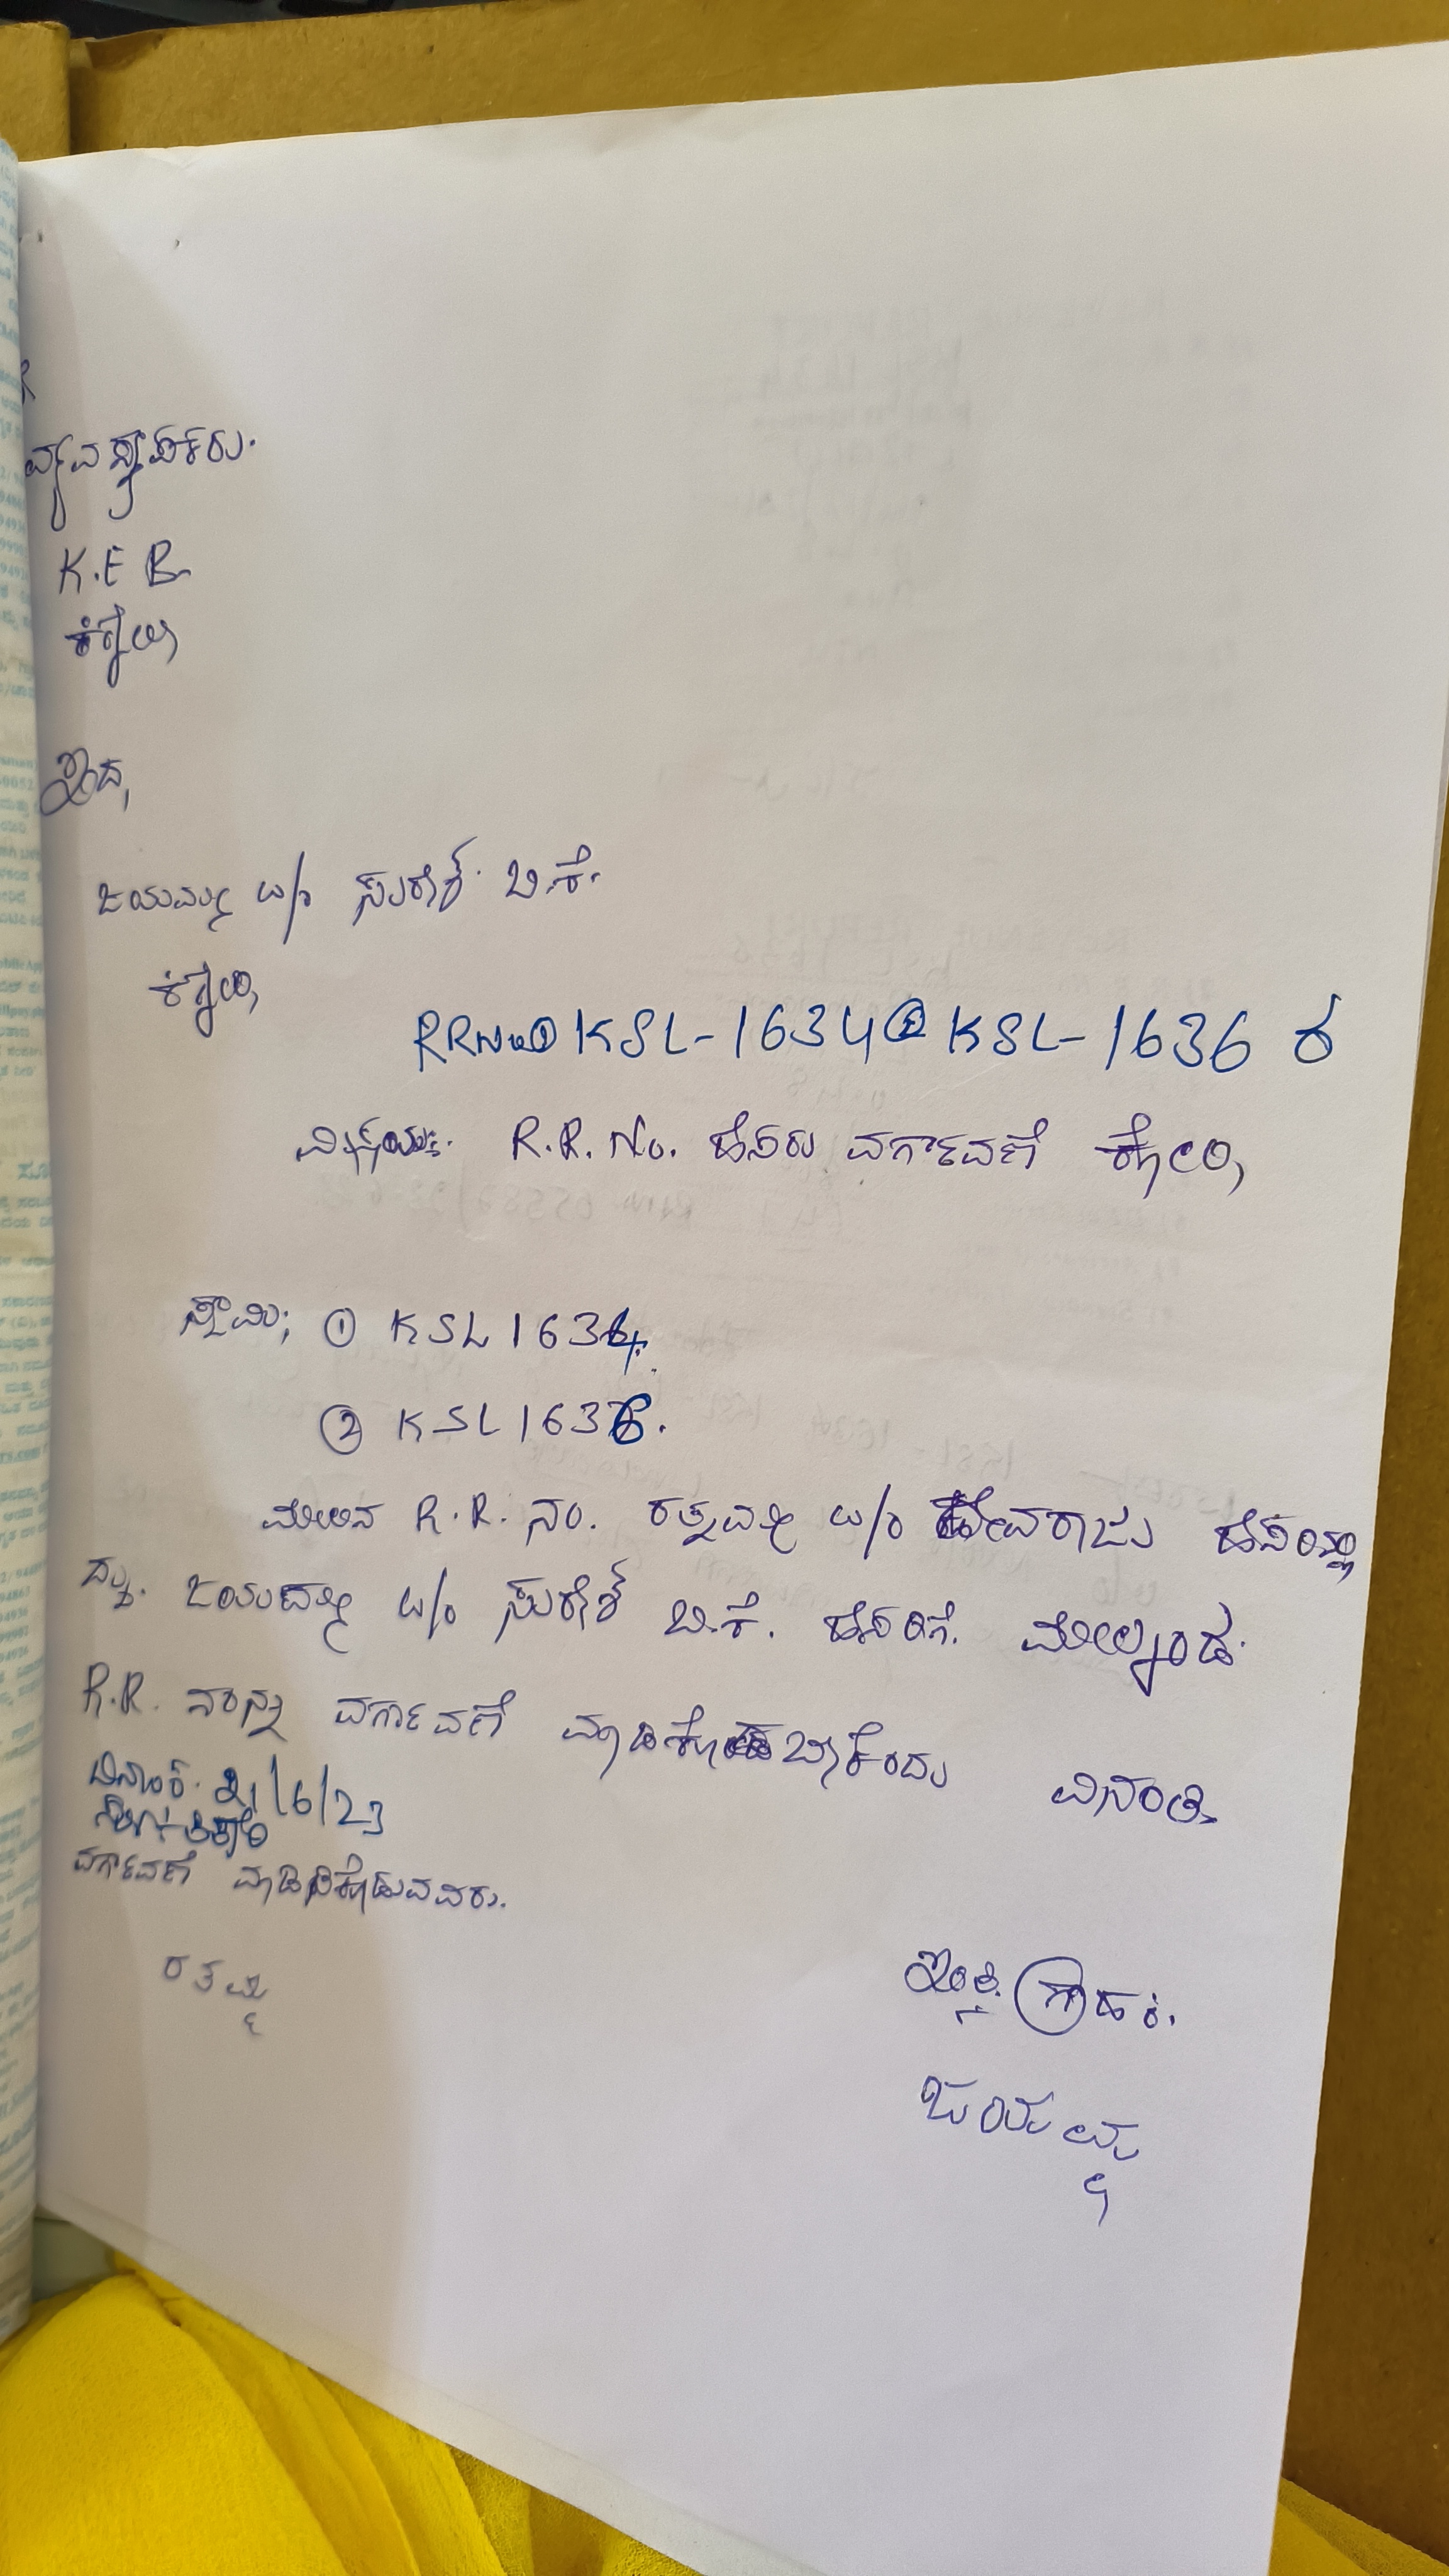 ವ್ಯವಸ್ಥಾಪಕರು.
K.E.B.
ಇಂದ,
ಜಯಮ್ಮ W/o ಸುರೇಶ್. ಬಿ.ಕೆ.
RR No ① KSL-1634 ② KSL-1636 ರ
ವಿಷಯ:- R.R. No. ಹೆಸರು ವರ್ಗಾವಣೆ ಕೋರಿ,
ಸ್ವಾಮಿ; ① KSL 1634.
② KSL 1636.
ಮೇಲಿನ R.R. ನಂ. ರತ್ನಮ್ಮ W/o ದೇವರಾಜು ಹೆಸರಿನಲ್ಲಿ
ದ್ದು. ಜಯಮ್ಮ W/o ಸುರೇಶ್ ಬಿ.ಕೆ. ಹೆಸರಿಗೆ. ಮೇಲ್ಕಂಡ.
R.R. ನಂನ್ನು ವರ್ಗಾವಣೆ ಮಾಡಿಕೊಡಬೇಕೆಂದು ವಿನಂತಿ.
ದಿನಾಂಕ. 21/6/23
ವರ್ಗಾವಣೆ ಮಾಡಿಕೊಡುವವರು.
ರತ್ನಮ್ಮ
ಇಂತಿ ಗ್ರಾಹಕ.
ಜಯಮ್ಮ